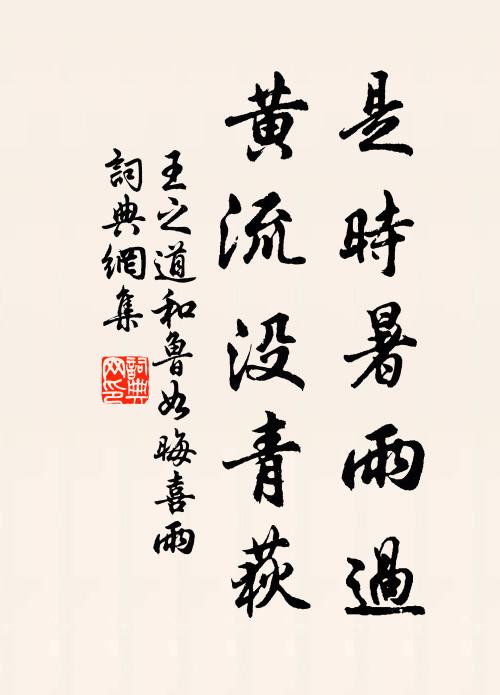 是時暑雨過
黃流没青萩
王之道和魯如晦喜雨
詞典網集
詞典網印